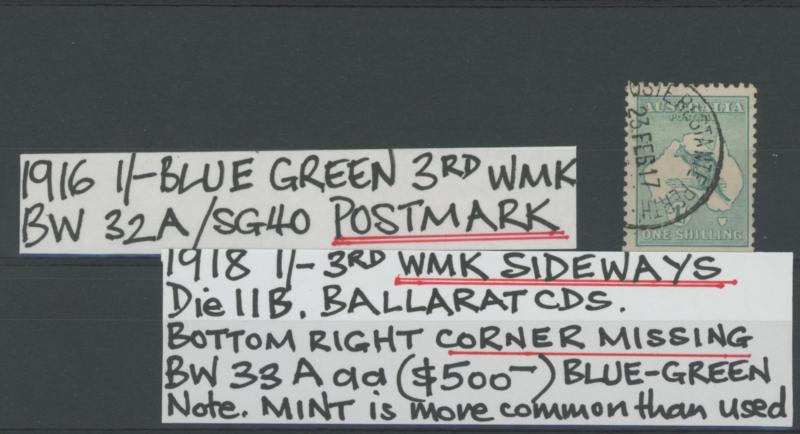 AUSTRALIA
23 FE 17
ONE SHILLING
1916 1/- BLUE GREEN 3RD WMK
BW 32A/SG40 POSTMARK
1918 1/- 3RD WMK SIDEWAYS
Die IIB. BALLARAT CDS.
BOTTOM RIGHT CORNER MISSING
BW 33 A aa ($500-) BLUE-GREEN
Note. MINT is more common than used